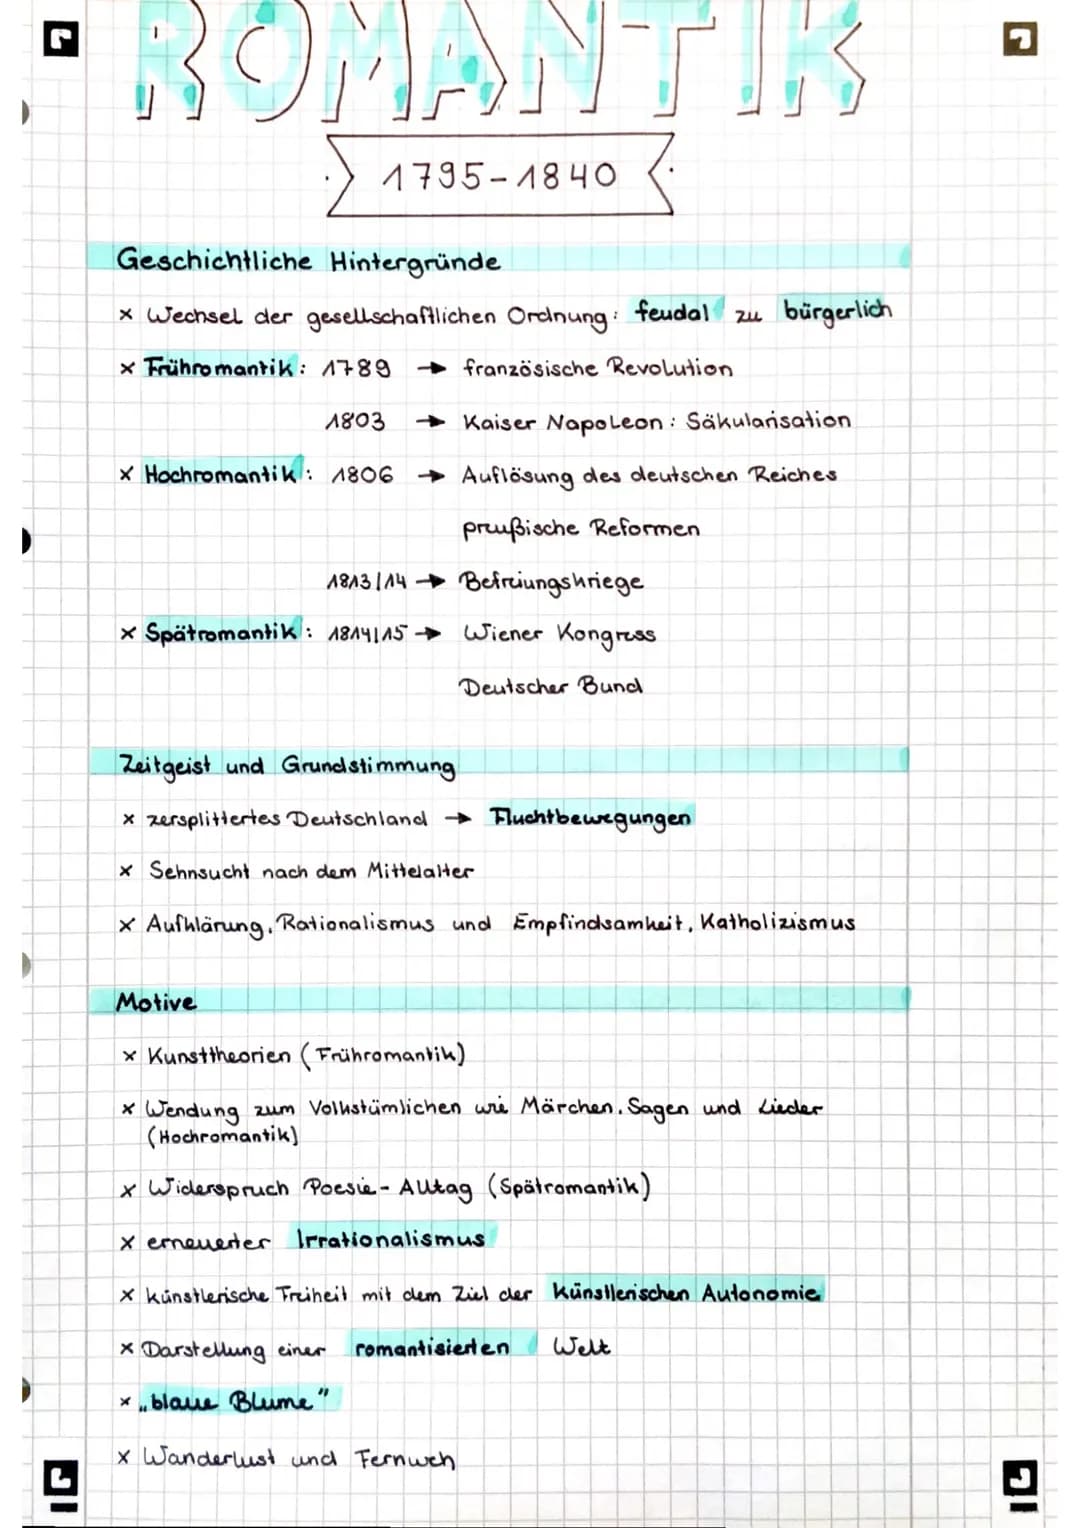 ROMANTIK
1795-1840
Geschichtliche Hintergründe
x Wechsel der gesellschaftlichen Ordnung: feudal zu bürgerlich
x Frühromantik: 1789 → französische Revolution
1803 → Kaiser Napoleon: Säkularisation
x Hochromantik: 1806 → Auflösung des deutschen Reiches
preußische Reformen
1813/14 → Befreiungskriege
x Spätromantik: 1814/15 → Wiener Kongress
Deutscher Bund
Zeitgeist und Grundstimmung
x zersplittertes Deutschland → Fluchtbewegungen
x Sehnsucht nach dem Mittelalter
x Aufklärung, Rationalismus und Empfindsamkeit, Katholizismus
Motive
x Kunsttheorien (Frühromantik)
x Wendung zum Volkstümlichen wie Märchen, Sagen und Lieder
(Hochromantik)
x Widerspruch Poesie - Alltag (Spätromantik)
x erneuerter Irrationalismus
x künstlerische Freiheit mit dem Ziel der künstlerischen Autonomie
x Darstellung einer romantisierten Welt
x „blaue Blume"
x Wanderlust und Fernweh